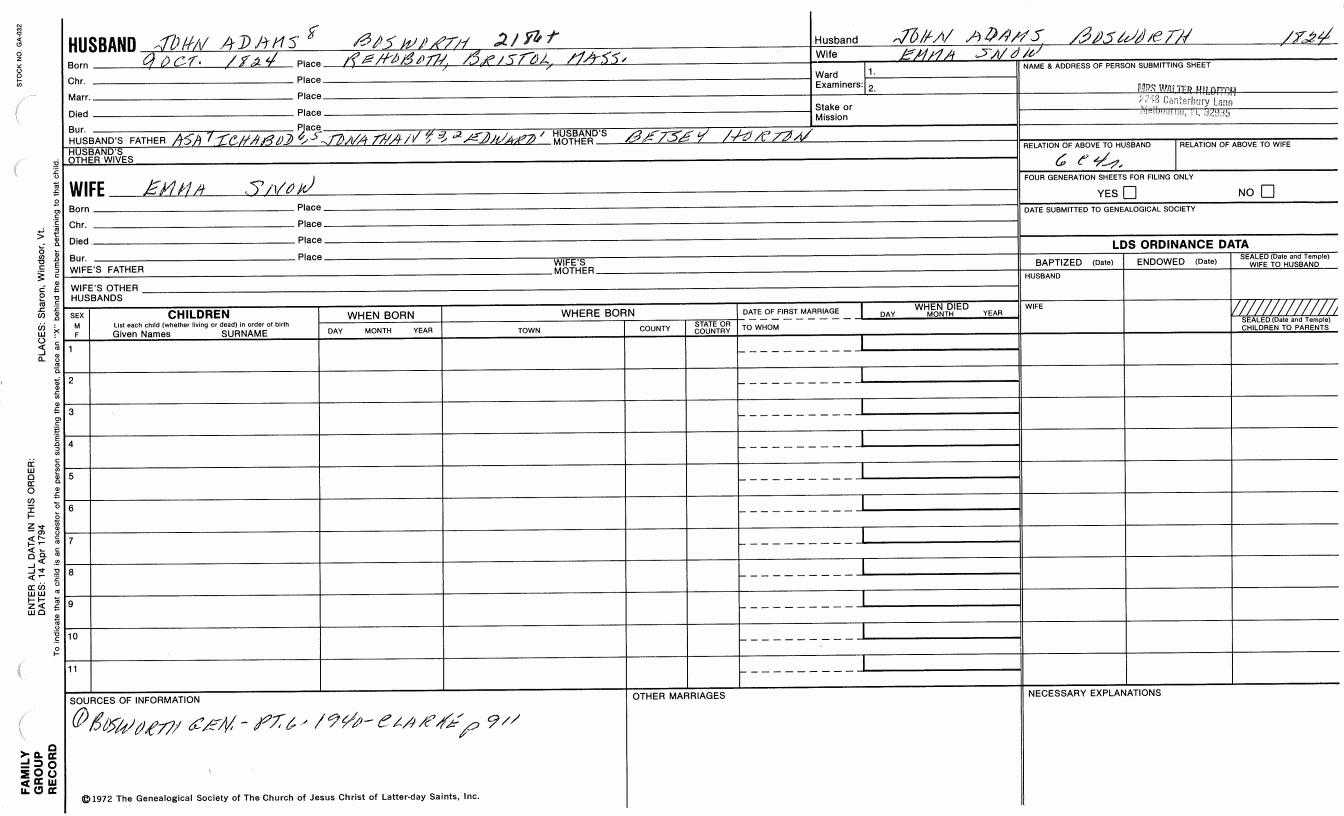 STOCK NO. GA-032
HUSBAND JOHN ADAMS⁸ BOSWORTH 2186+
Born 9 OCT. 1824 Place REHOBOTH, BRISTOL, MASS.
Chr. Place
Marr. Place
Died Place
Bur. Place
HUSBAND'S FATHER ASA⁷ ICHABOD⁶,⁵ JONATHAN⁴,³,² EDWARD¹ HUSBAND'S MOTHER BETSEY HORTON
HUSBAND'S OTHER WIVES
Husband JOHN ADAMS BOSWORTH 1824
Wife EMMA SNOW
Ward Examiners: 1.
2.
Stake or Mission
NAME & ADDRESS OF PERSON SUBMITTING SHEET
MRS WALTER
Canterbury Lane
Melbourne, FL 32935
RELATION OF ABOVE TO HUSBAND
RELATION OF ABOVE TO WIFE
FOUR GENERATION SHEETS FOR FILING ONLY
YES NO
DATE SUBMITTED TO GENEALOGICAL SOCIETY
WIFE EMMA SNOW
Born Place
Chr. Place
Died Place
Bur. Place
WIFE'S FATHER WIFE'S MOTHER
WIFE'S OTHER HUSBANDS
LDS ORDINANCE DATA
BAPTIZED (Date) ENDOWED (Date) SEALED (Date and Temple) WIFE TO HUSBAND
HUSBAND
WIFE
SEALED (Date and Temple) CHILDREN TO PARENTS
SEX M F
CHILDREN
List each child (whether living or dead) in order of birth
Given Names SURNAME
WHEN BORN
DAY MONTH YEAR
WHERE BORN
TOWN COUNTY STATE OR COUNTRY
DATE OF FIRST MARRIAGE
TO WHOM
WHEN DIED
DAY MONTH YEAR
1
2
3
4
5
6
7
8
9
10
11
SOURCES OF INFORMATION
① BOSWORTH GEN.- PT.6 - 1940- CLARKE p 911
OTHER MARRIAGES
NECESSARY EXPLANATIONS
©1972 The Genealogical Society of The Church of Jesus Christ of Latter-day Saints, Inc.
FAMILY GROUP RECORD
ENTER ALL DATA IN THIS ORDER:
DATES: 14 Apr 1794 PLACES: Sharon, Windsor, Vt.
To indicate that a child is an ancestor of the person submitting the sheet, place an "X" behind the number pertaining to that child.